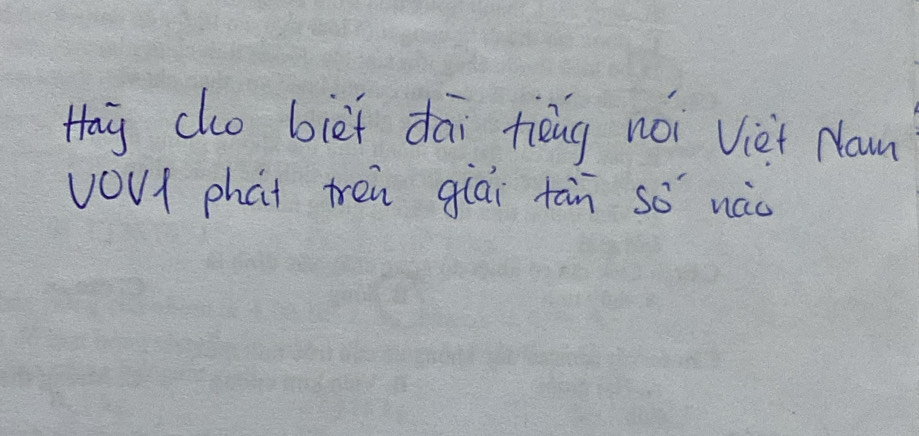 Hãy cho biết đài tiếng nói Việt Nam
VOV1 phát trên giải tần số nào